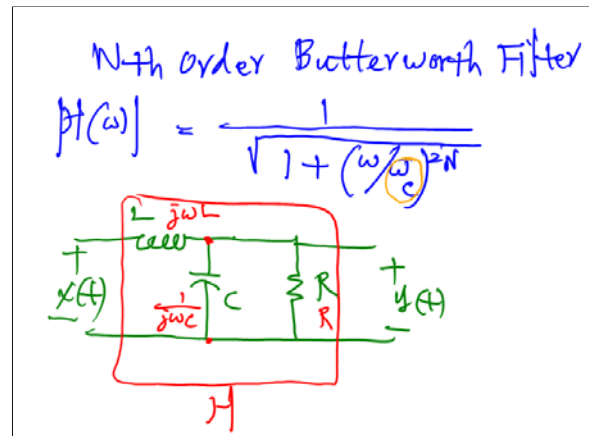 Nth Order Butterworth Filter
|H(ω)| = 1 / √(1 + (ω/ωc)^2N)
L jωL
+ +
x(t) 1/jωC C R R y(t)
- -
H